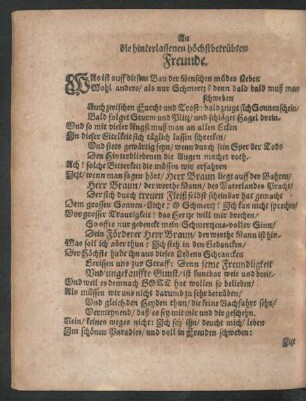 An
die hinterlassenen höchstbetrübten
Freunde.
WAs ist auff diesem Bau der Menschen müdes Leben
Wohl anders/ als nur Schmertz? denn bald bald muß man
schweben
Auch zwischen Furcht und Trost: bald zeugt sich Sonnenschein/
Bald folget Sturm und Plitz/ und schläget Hagel drein.
Und so mit vieler Angst muß man an allen Ecken
In dieser Eitelkeit sich täglich lassen schrecken/
Und stets gewärtig seyn/ wenn durch sein Sper der Tod
Den Hinterbliebenen die Augen machet roth.
Ach! solche Bitterkeit die müssen wir erfahren
Jetzt/ wenn man sagen hört/ Herr Braun liegt auff der Bahren/
Herr Braun/ der werthe Mann/ des Vaterlandes Pracht/
Der sich durch treuen Fleiß selbst scheinbar hat gemacht
Dem grossen Sonnen-Licht: O Schmertz! Ich kan nicht sprechen/
Vor grosser Traurigkeit; das Hertze will mir brechen/
So offte nur gedenckt mein Schmertzens-voller Sinn/
Dein Förderer Herr Braun/ der werthe Mann ist hin.
Was soll ich aber thun? Ich steh in den Gedancken/
Der Höchste habe ihn aus diesen Lebens Schrancken
Gerissen uns zur Straff: Denn seine Freundligkeit
Und ungefauffte Gunst/ ist kundbar weit und breit.
Und weil es demnach GOTT hat wollen so belieben/
Als müssen wir uns nicht darumb zu sehr betrüben/
Und gleich den Heyden thun/ die keine Nachfahrt sehn/
Vermeynend/ daß es sey mit mir und dir geschehn.
Nein/ keines weges nicht: Ich seh ihn/ deucht mich/ leben
Im schönen Paradies/ und voll in Freuden schweben: